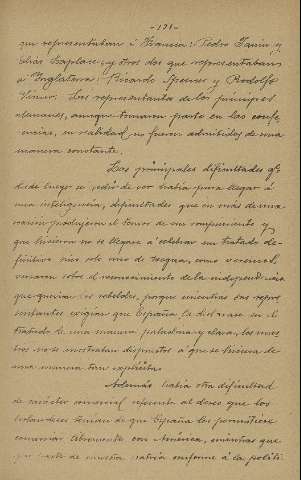 -171-
que representaban á Francia: Pedro Janin y
Elías Laplace, y otros dos que representaban
á Inglaterra: Ricardo Spenser y Rodolfo
Los representantes de los príncipes
alemanes, aunque tomaron parte en las confe-
rencias, en realidad, no fueron admitidos de una
manera constante.
Las principales dificultades que
desde luego se echó de ver había para llegar á
una inteligencia, dificultades que en más de una
ocasión produjeron el temor de un rompimiento y
que hicieron no se llegase á celebrar un tratado de-
finitivo sino solo uno de tregua, como veremos,
versaron sobre el reconocimiento de la independencia
que querían los rebeldes, porque mientras sus repre-
sentantes exigían que España la declarase en el
tratado de una manera palmaria y clara, los nues-
tros no se mostraban dispuestos á que se hiciera de
una manera tan explícita.
Además había otra dificultad
de carácter comercial referente al deseo que los
holandeses tenían de que España les permitiese
comerciar libremente con América, mientras que
por parte de nuestra patria conforme á la políti-